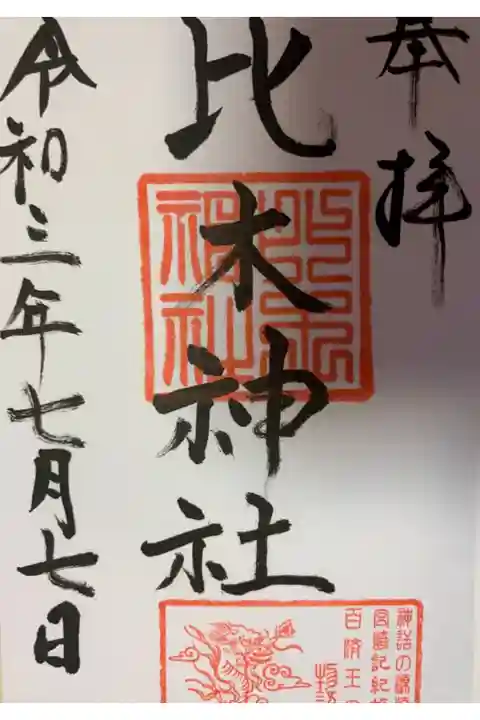 奉拝
比木神社
比木神社
令和三年七月七日
神話の源流
宮崎記紀
百済王の